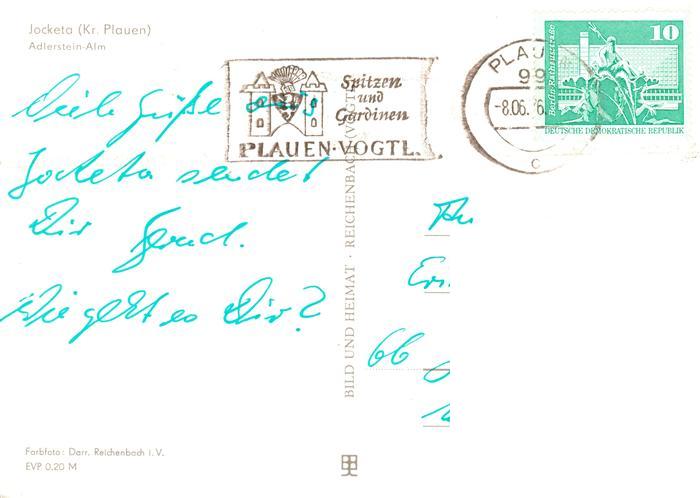 Jocketa (Kr. Plauen)
Adlerstein-Alm
Viele Grüße aus
Jocketa sendet
Dir
Wie geht es Dir?
Spitzen
und
Gardinen
PLAUEN·VOGTL.
PLAU
99
-8.06.
c
10
Berlin, Rathausstraße
DEUTSCHE DEMOKRATISCHE REPUBLIK
BILD UND HEIMAT · REICHENBACH (VOGTL
An
66
Farbfoto: Darr. Reichenbach i. V.
EVP 0,20 M